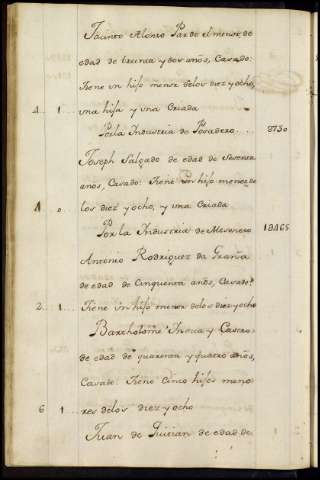 Jacinto Alonso Pardo el menor, de
edad de treinta y dos años, Casado:
tiene un hijo menor delos diez y ocho,
4.. 1.... una hija y una Criada
Por la Industria de Posadero... 3750
Joseph Salgado de edad de Sesenta
años, Casado: Tiene Un hijo menor de
los diez y ocho, y una Criada
Por la Industria de Mesonero 18465
Antonio Rodriguez da Granja
de edad de Cinquenta años, Casado.
2. 1.... Tiene un hijo menor delos diez y ocho
Bartholome Inoia y Castro
de edad de quarenta y quatro años,
Casado: Tiene Cinco hijos meno
6 1.... res delos diez y ocho
Juan de Guitian de edad de